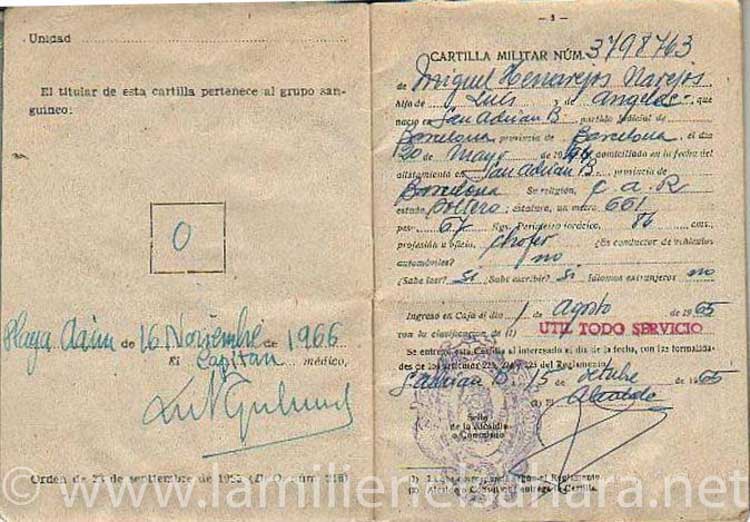 Unidad
El titular de esta cartilla pertenece al grupo san-
guíneo:
O
Playa Aaiun de 16 Noviembre de 1966
El Capitan médico,
Orden de 23 de septiembre de 1955 (D. O. núm. 218)
— 3 —
CARTILLA MILITAR NÚM. 3798763
de Miguel Henarejos Narejos
hijo de Luis y de Angeles, que
nació en San Adrian B. partido judicial de
Barcelona provincia de Barcelona el día
20 de Mayo de 1944 domiciliado en la fecha del
alistamiento en San Adrian B. provincia de
Barcelona Su religión, C. A. R
estado Soltero; estatura, un metro 661
peso 67 Kgs. Perímetro torácico, 86 cms.,
profesión u oficio, chofer ¿Es conductor de vehículos
automóviles? no
¿Sabe leer? Si ¿Sabe escribir? Si Idiomas extranjeros no
Ingreso en Caja el día 1 de Agosto de 1965
con la clasificación de (1) UTIL TODO SERVICIO
Se entregó esta Cartilla al interesado el día de la fecha, con las formalida-
des de los artículos 223, 224 y 225 del Reglamento.
S. Adrian B. 15 de octubre de 1965
(2) El Alcalde
Sello
de la Alcaldía
o Consulado
(1) La que corresponda según el Reglamento.
(2) Alcalde o Cónsul que entrega la Cartilla.
© www.lamilienelsahara.net